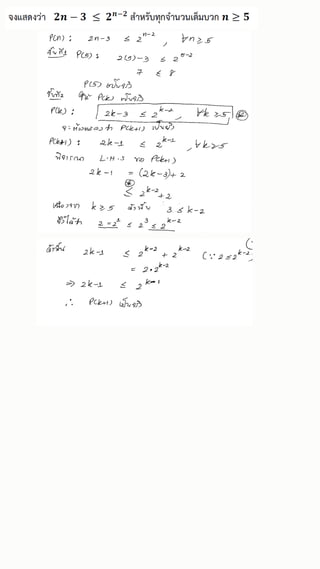 จงแสดงว่า 2n − 3 ≤ 2^{n−2} สำหรับทุกจำนวนเต็มบวก n ≥ 5
P(n) : 2n-3 ≤ 2^{n-2} , ∀n ≥ 5
ขั้นที่1 P(5) : 2(5)-3 ≤ 2^{5-2}
7 ≤ 8
P(5) เป็นจริง
ขั้นที่2 ให้ P(k) เป็นจริง
P(k) : 2k-3 ≤ 2^{k-2} , ∀k ≥ 5 ⊛
จะต้องแสดงว่า P(k+1) เป็นจริง
P(k+1) : 2k-1 ≤ 2^{k-1} , ∀k ≥ 5
พิจารณา L.H.S ของ P(k+1)
2k-1 = (2k-3)+2
⊛
≤ 2^{k-2}+2
เนื่องจาก k ≥ 5 ดังนั้น 3 ≤ k-2
จึงได้ว่า 2 = 2^1 ≤ 2^3 ≤ 2^{k-2}
ดังนั้น 2k-1 ≤ 2^{k-2} + 2^{k-2} (∵ 2 ≤ 2^{k-2}
= 2•2^{k-2}
⇒ 2k-1 ≤ 2^{k-1}
∴ P(k+1) เป็นจริง